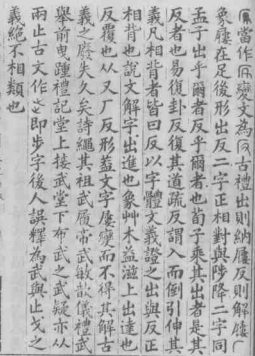 當作變文為古禮出則納屨反則解屨
象屨在足後形出反二字正相對與陟降二字同
孟子出乎爾者反乎爾者也荀子乘其出者是其
反者也易復卦反復其道疏反謂入而倒引伸其
義凡相背者皆曰反以字體文義證之出與反正
相背也說文解字出進也象艸木益滋上出達也
反覆也从又厂反形蓋文字屢變而不得其解古
義之廢失久矣詩繩其祖武履帝武敏歆儀禮武
舉前曳踵禮記堂上接武堂下布武之武疑亦从
兩止古文作即步字後人誤釋為武與止戈之
義絕不相類也